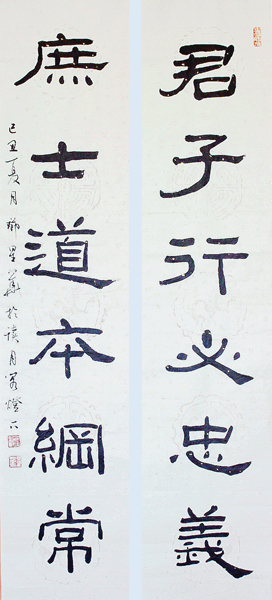 君子行必忠義
庶士道本綱常
己丑夏月鄉星華於讀月軒燈下